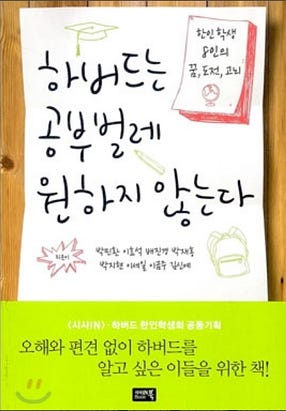 한인 학생
8인의
꿈, 도전, 고뇌
하버드는
공부벌레
원하지 않는다
지은이
박민환 이호석 배진경 박재홍
박지현 이세일 이푸주 김신애
<시사IN>·하버드 한인학생회 공동기획
오해와 편견 없이 하버드를
알고 싶은 이들을 위한 책!
시사IN북
Book
yes